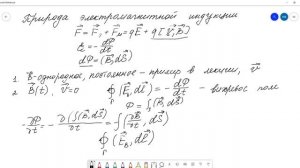 Природа электромагнитной индукции
F⃗ = F⃗э + F⃗м = qE⃗ + q[v⃗, B⃗]
ε = -dФ/dt
dФ = (B⃗, dS⃗)
1. B⃗ -однородное, постоянное - пример в лекции, v⃗
2. B⃗(t), v⃗=0 ∮(E⃗, dl⃗) = -dФ/dt - вихревое поле
Ф = ∫(B⃗, dS⃗)
-∂Ф/∂t = -∂(∫(B⃗, dS⃗))/∂t = -∫(∂B⃗/∂t, dS⃗)
∮(E⃗в, dl⃗)